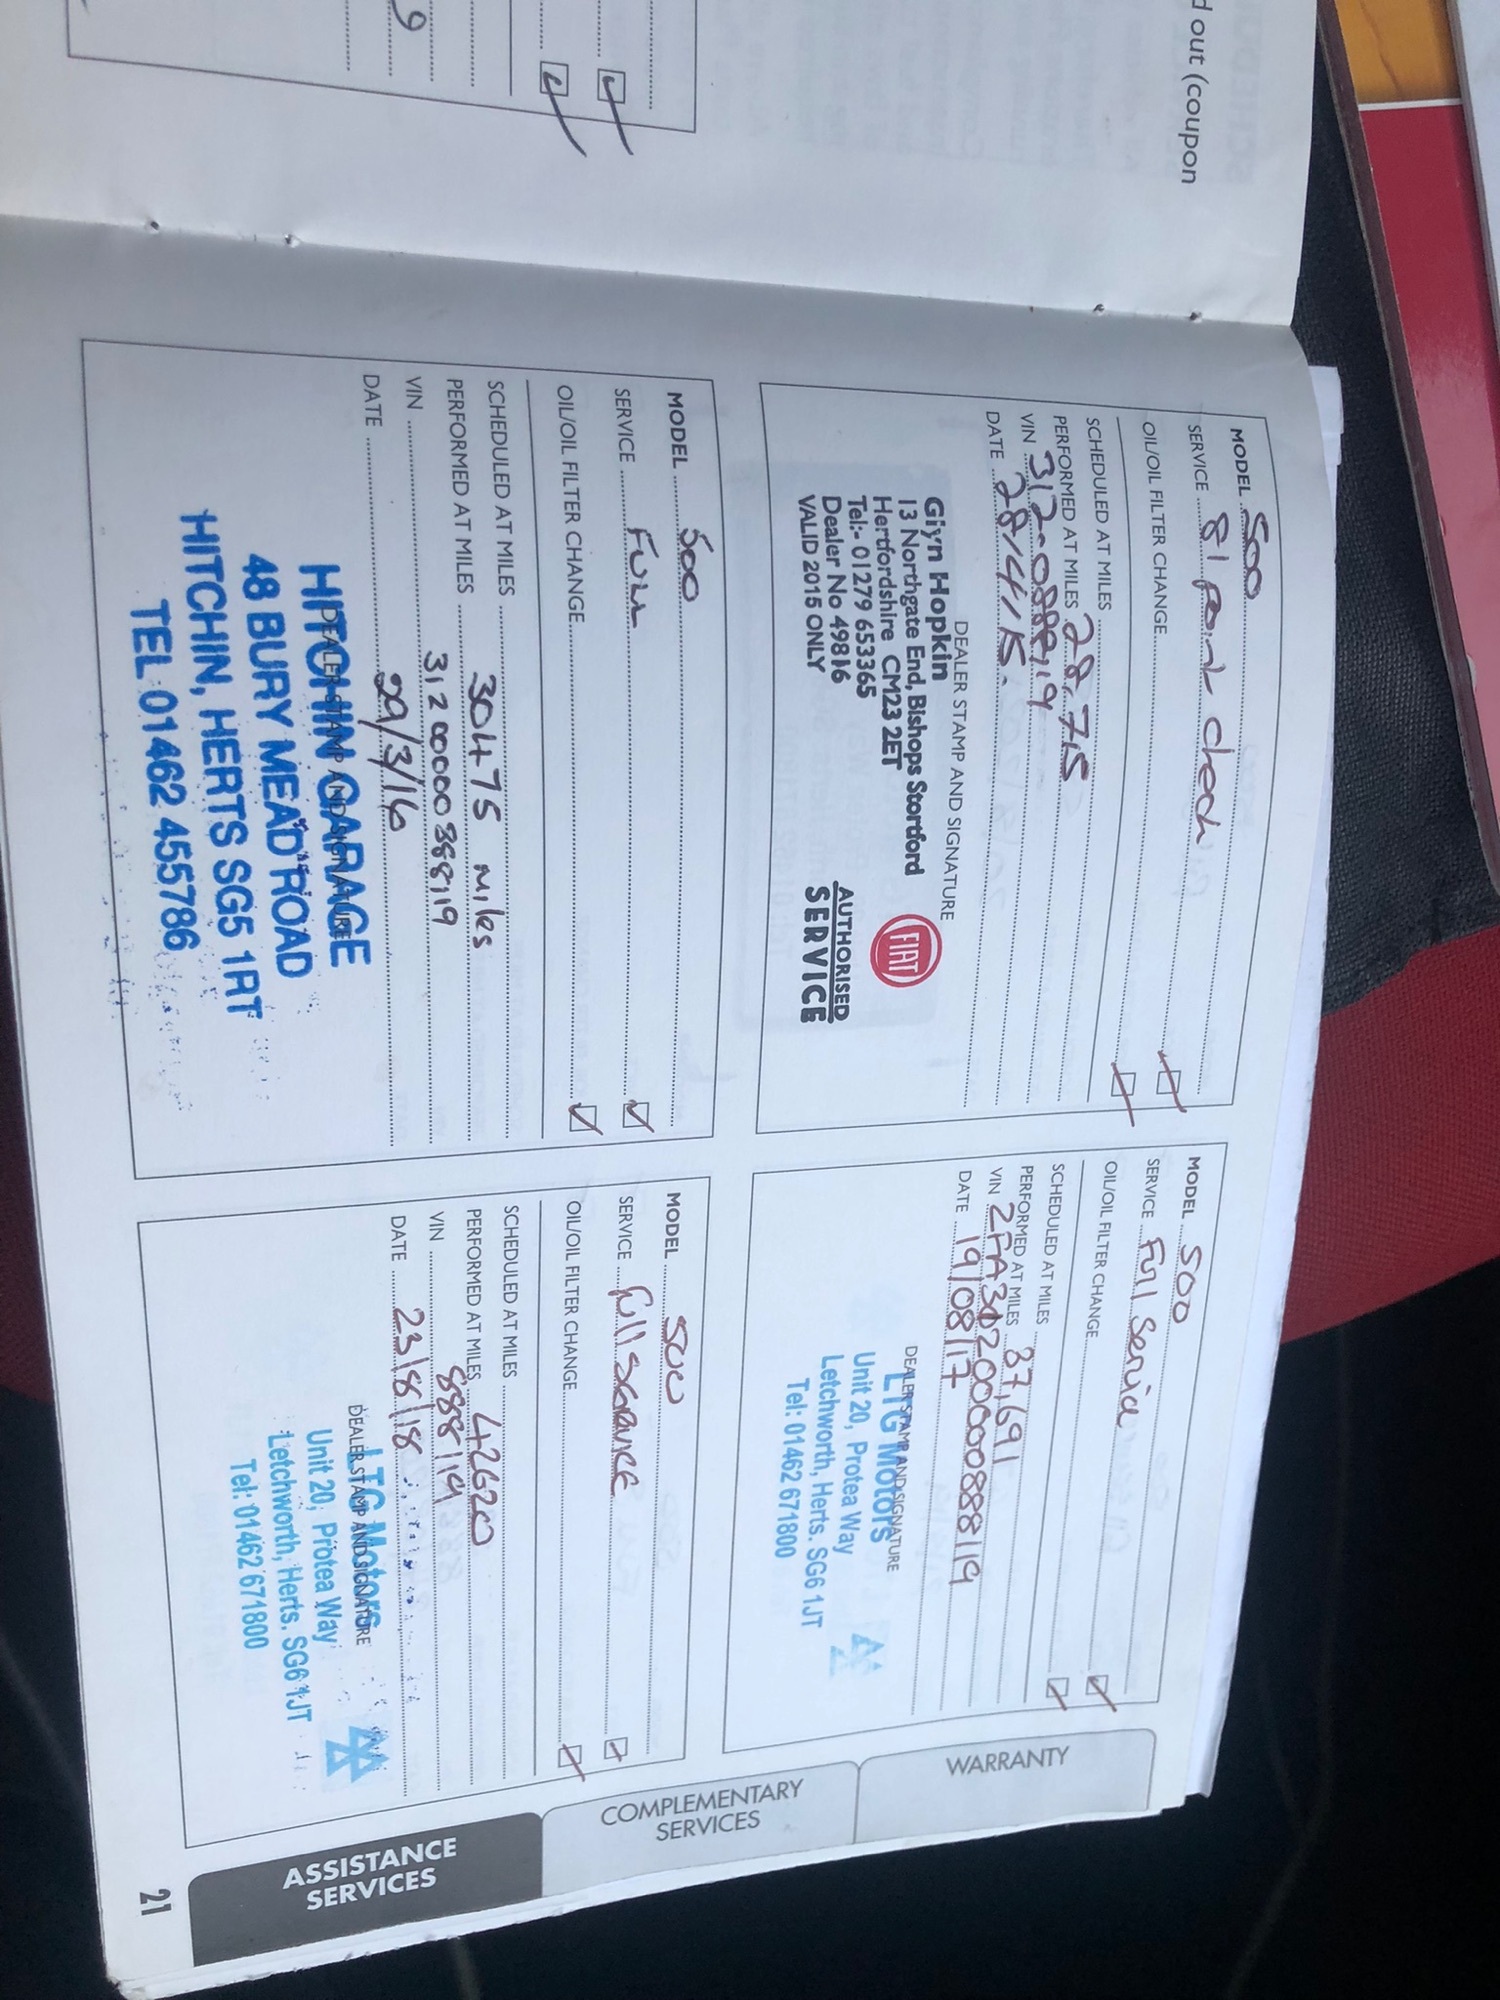 d out (coupon
9
MODEL 500
SERVICE 81 point check
OIL/OIL FILTER CHANGE
SCHEDULED AT MILES
PERFORMED AT MILES 28,715
VIN 312-0888119
DATE 28/4/15.
DEALER STAMP AND SIGNATURE
Glyn Hopkin
13 Northgate End, Bishops Stortford
Hertfordshire. CM23 2ET
Tel:- 01279 653365
Dealer No 49816
VALID 2015 ONLY
FIAT
AUTHORISED
SERVICE
MODEL 500
SERVICE Full Service
OIL/OIL FILTER CHANGE
SCHEDULED AT MILES
PERFORMED AT MILES 37,691
VIN ZFA31200000888119
DATE 19/08/17
DEALER STAMP AND SIGNATURE
LTG Motors
Unit 20, Protea Way
Letchworth, Herts. SG6 1JT
Tel: 01462 671800
MODEL 500
SERVICE Full
OIL/OIL FILTER CHANGE
SCHEDULED AT MILES
PERFORMED AT MILES 30475 miles
VIN 31200000888119
DATE 29/3/16
DEALER STAMP AND SIGNATURE
HITCHIN GARAGE
48 BURY MEAD ROAD
HITCHIN, HERTS SG5 1RT
TEL 01462 455786
MODEL 500
SERVICE full service
OIL/OIL FILTER CHANGE
SCHEDULED AT MILES
PERFORMED AT MILES 42620
VIN 888119
DATE 23/8/18
DEALER STAMP AND SIGNATURE
LTG Motors
Unit 20, Protea Way
Letchworth, Herts. SG6 1JT
Tel: 01462 671800
WARRANTY
COMPLEMENTARY
SERVICES
ASSISTANCE
SERVICES
21